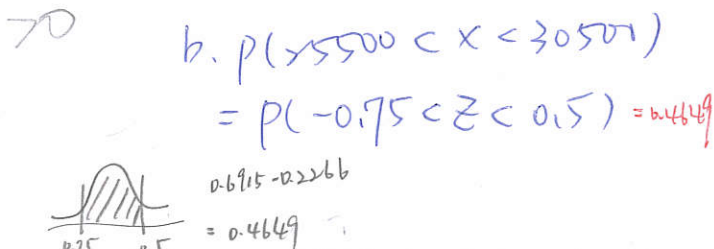 b. P(25500 < X < 30500)
= P(-0.75 < Z < 0.5) = 0.4649
0.6915 - 0.2266
= 0.4649